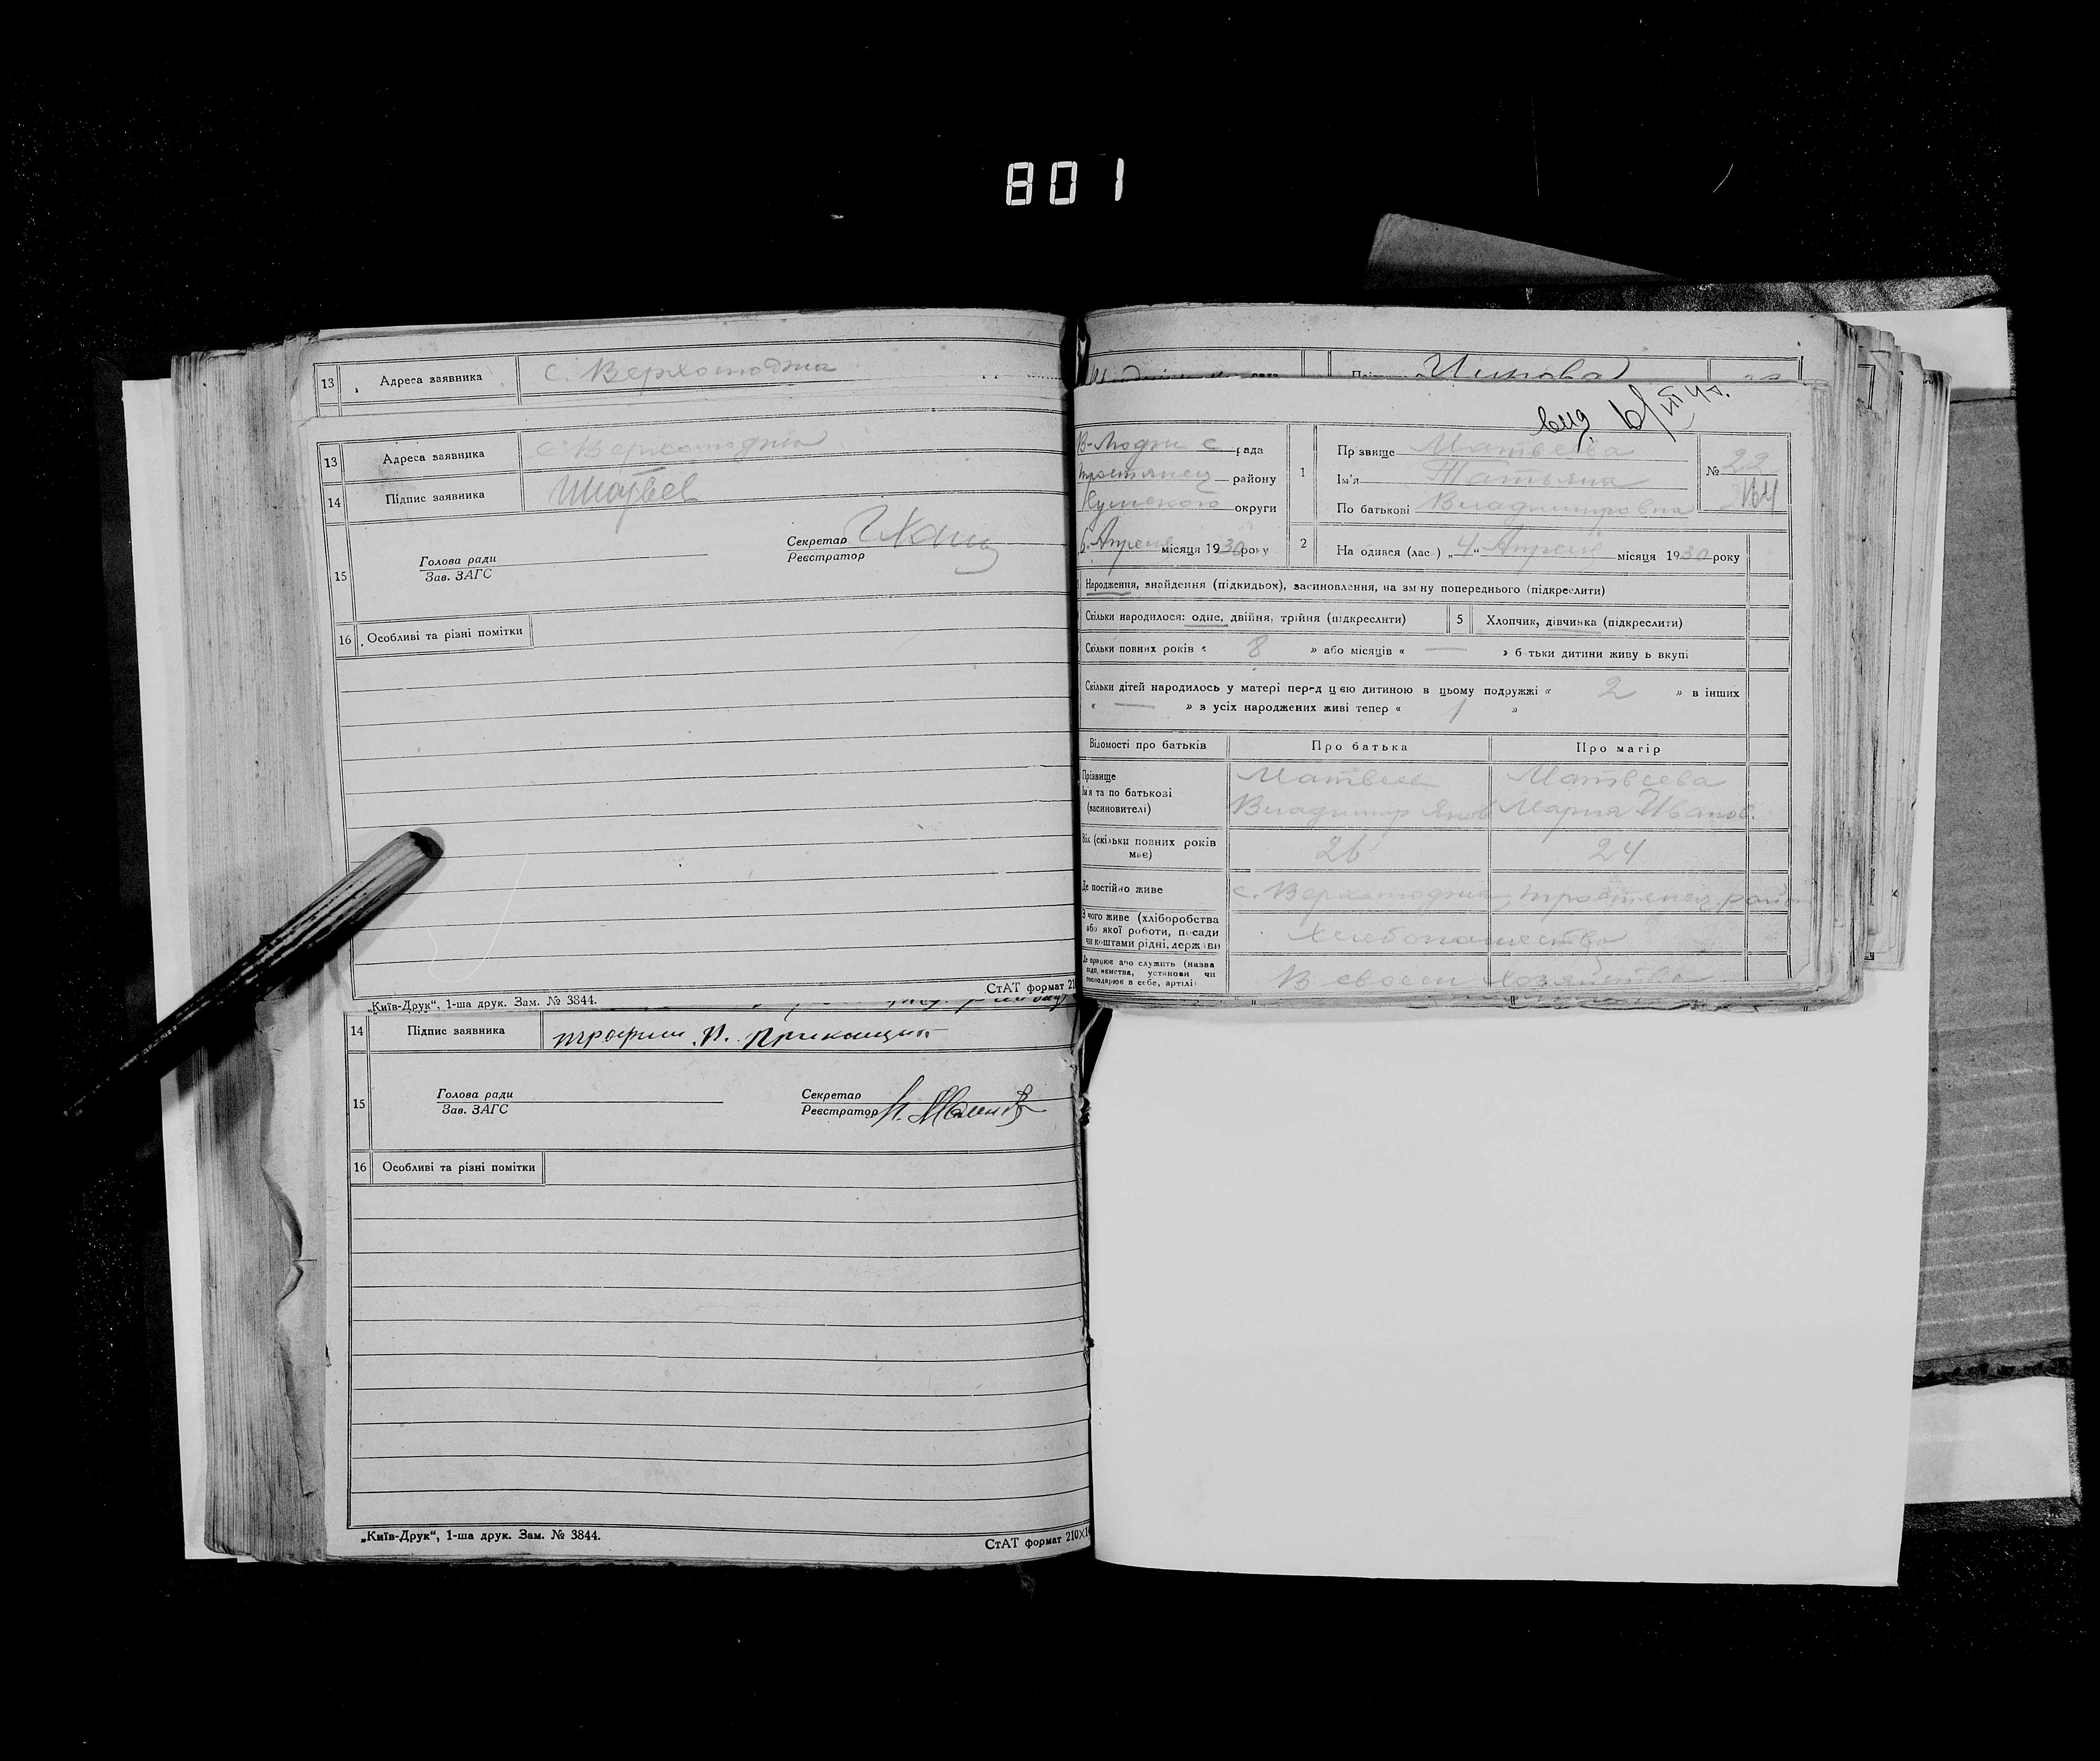 801
13 Адреса заявника с. Верхолюджа
13 Адреса заявника с. Верхолюджа
14 Підпис заявника Матвеев
15 Голова ради
Зав. ЗАГС
Секретар
Реєстратор
16 Особливі та різні помітки
„Київ-Друк“, 1-ша друк. Зам. № 3844.
СтАТ формат 21
14 Підпис заявника
15 Голова ради
Зав. ЗАГС
Секретар
Реєстратор
16 Особливі та різні помітки
„Київ-Друк“, 1-ша друк. Зам. № 3844.
СтАТ формат 210×14
вид
В-Люджи с рада
Тростянец району
Сумского округи
6 Апреля місяця 1930 року
1 Прізвище Матвеева
Ім'я Татьяна
По батькові Владимировна
№ 22
2 На одився (лась) „4“ Апреля місяця 1930 року
Народження, знайдення (підкидьок), засиновлення, на зміну попереднього (підкреслити)
Скільки народилося: одне, двійня, трійня (підкреслити)
5 Хлопчик, дівчинка (підкреслити)
Скільки повних років « 8 » або місяців « — » батьки дитини живуть вкупі
Скільки дітей народилось у матері перед цією дитиною в цьому подружжі « 2 » в інших
« — » з усіх народжених живі тепер « 1 »
Відомості про батьків Про батька Про матір
Прізвище Матвеев Матвеева
Ім'я та по батькові
(засиновителі) Владимир Яков Мария Иванов.
Вік (скільки повних років має) 26 24
Де постійно живе с. Верхолюджа, Тростенец. район
З чого живе (хліборобства
або якої роботи, посади
чи коштами рідні, держави Хлебопашество
Де працює або служить (назва
підприємства, установи чи
господарює в себе, артілі) В своем хозяйстве